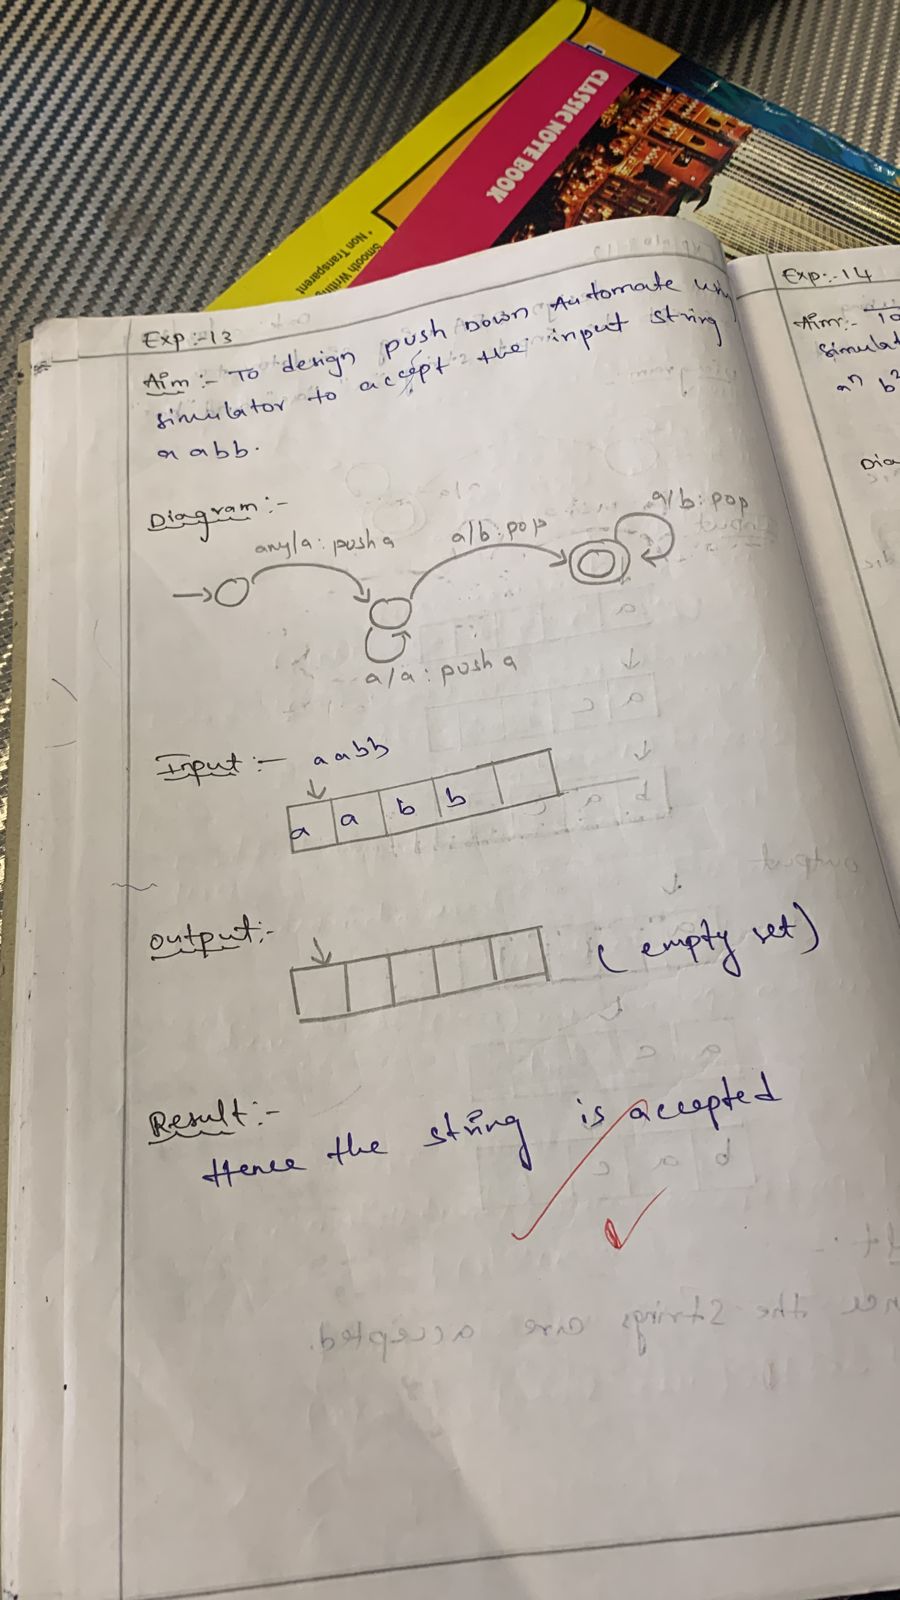 CLASSIC NOTE BOOK
Smooth Writing
* Non Transparent
Exp:-13
Aim:- To design push Down Automate using
simulator to accept the input string
aabb.
Diagram:-
any/a: push a
a/b: pop
a/b: pop
a/a: push a
Input:- aabb
a a b b
output:-
(empty set)
Result:-
Hence the string is accepted
Exp:-14
Aim:- To
simulat
aⁿ b²
Dia